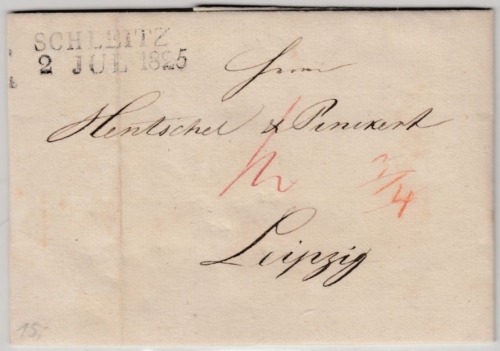 SCHLEITZ
2 JUL 1825
Herrn
Hentschel & Penckert
3/4
Leipzig
15,-